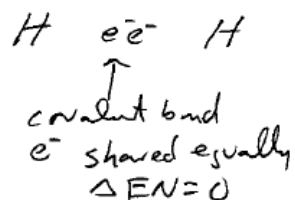 H e⁻e⁻ H
covalent bond
e⁻ shared equally
ΔEN=0